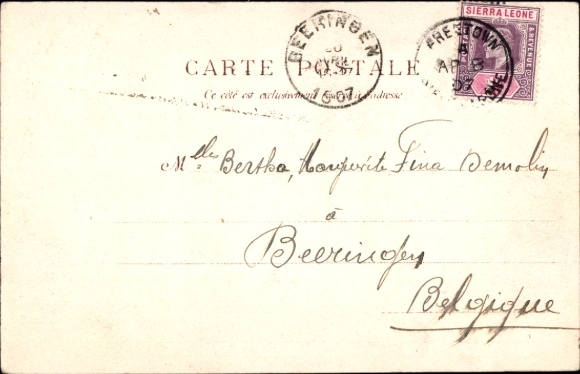 SIERRA LEONE
POSTAGE & REVENUE
FREETOWN
AP
SIERRA LEONE
BEERINGEN
20
AVRIL
1907
CARTE POSTALE
Ce côté est exclusivement réservé à l'adresse
Mlles Bertha, Marguerite Fina Demolin
à
Beeringen
Belgique